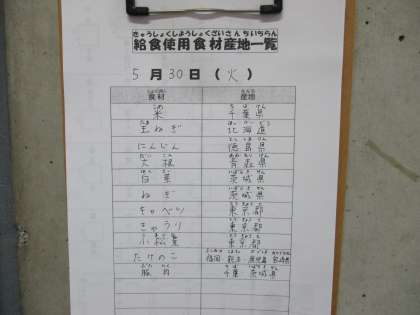 きゅうしょくしようしょくざいさんちいちらん
給食使用食材産地一覧
5月30日(火)
食材 産地
米 千葉県
玉ねぎ 北海道
にんじん 徳島県
大根 青森県
白菜 茨城県
ねぎ 茨城県
キャベツ 東京都
きゅうり 東京都
小松菜 東京都
たけのこ 福岡・熊本・鹿児島・宮崎県
豚肉 千葉・茨城県